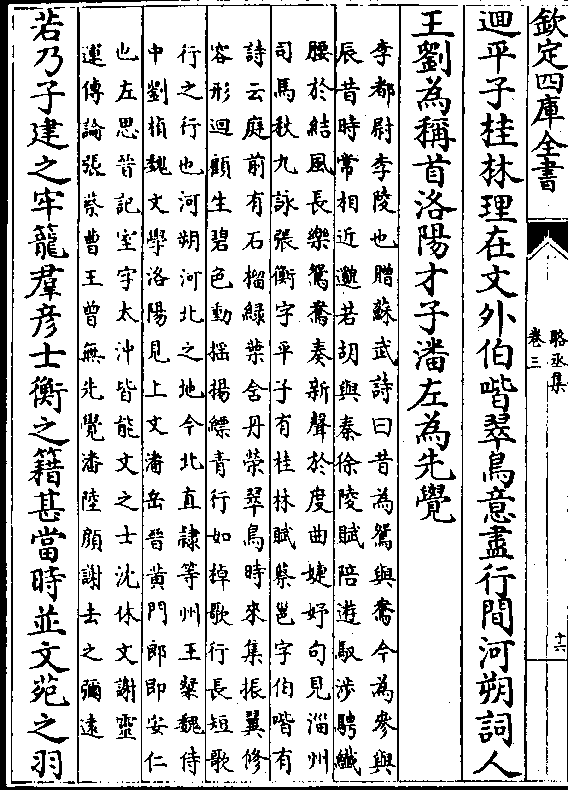 欽定四庫全書
駱丞集
卷三
十六
迴平子桂林理在文外伯喈翠鳥意盡行間河朔詞人
王劉為稱首洛陽才子潘左為先覺
李都尉李陵也贈蘇武詩曰昔為鴛與鴦今為參與
辰昔時常相近邈若胡與秦徐陵賦陪遊馭涉騁纎
腰於結風長樂鴛鴦奏新聲於度曲婕妤句見淄州
司馬秋九詠張衡字平子有桂林賦蔡邕字伯喈有
詩云庭前有石榴緑葉含丹榮翠鳥時來集振翼修
容形迴顧生碧色動揺揚縹青行如棹歌行長短歌
行之行也河朔河北之地今北直隸等州王粲魏侍
中劉楨魏文學洛陽見上文潘岳晉黄門郎即安仁
也左思晉記室字太沖皆能文之士沈休文謝靈
運傳論張蔡曹王曾無先覺潘陸顔謝去之彌遠
若乃子建之牢籠羣彦士衡之籍甚當時並文苑之羽